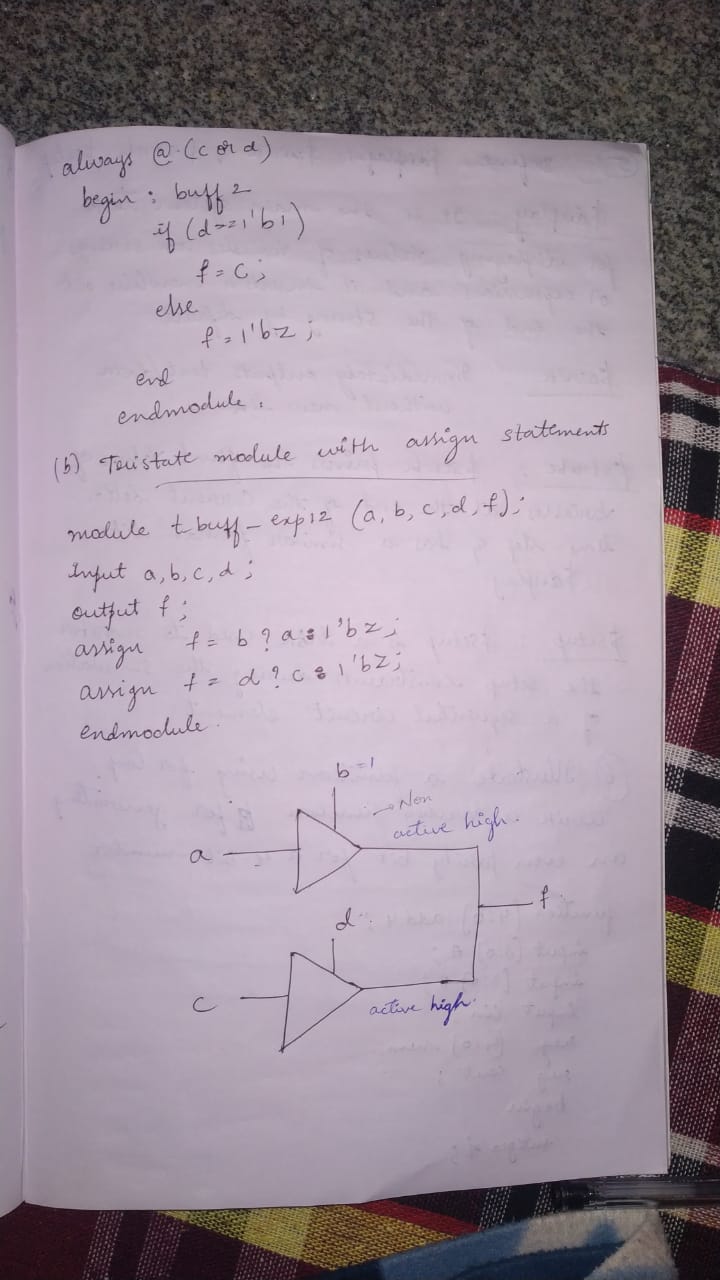 always @ (c or d)
begin : buff 2
if (d==1'b1)
f = c;
else
f = 1'bz;
end
endmodule.
(b) Tristate module with assign statements
module t buff-exp12 (a, b, c, d, f);
Input a, b, c, d;
output f;
assign f = b ? a : 1'bz;
assign f = d ? c : 1'bz;
endmodule.
b=1
→ Non
active high.
a
f.
d
c
active high.